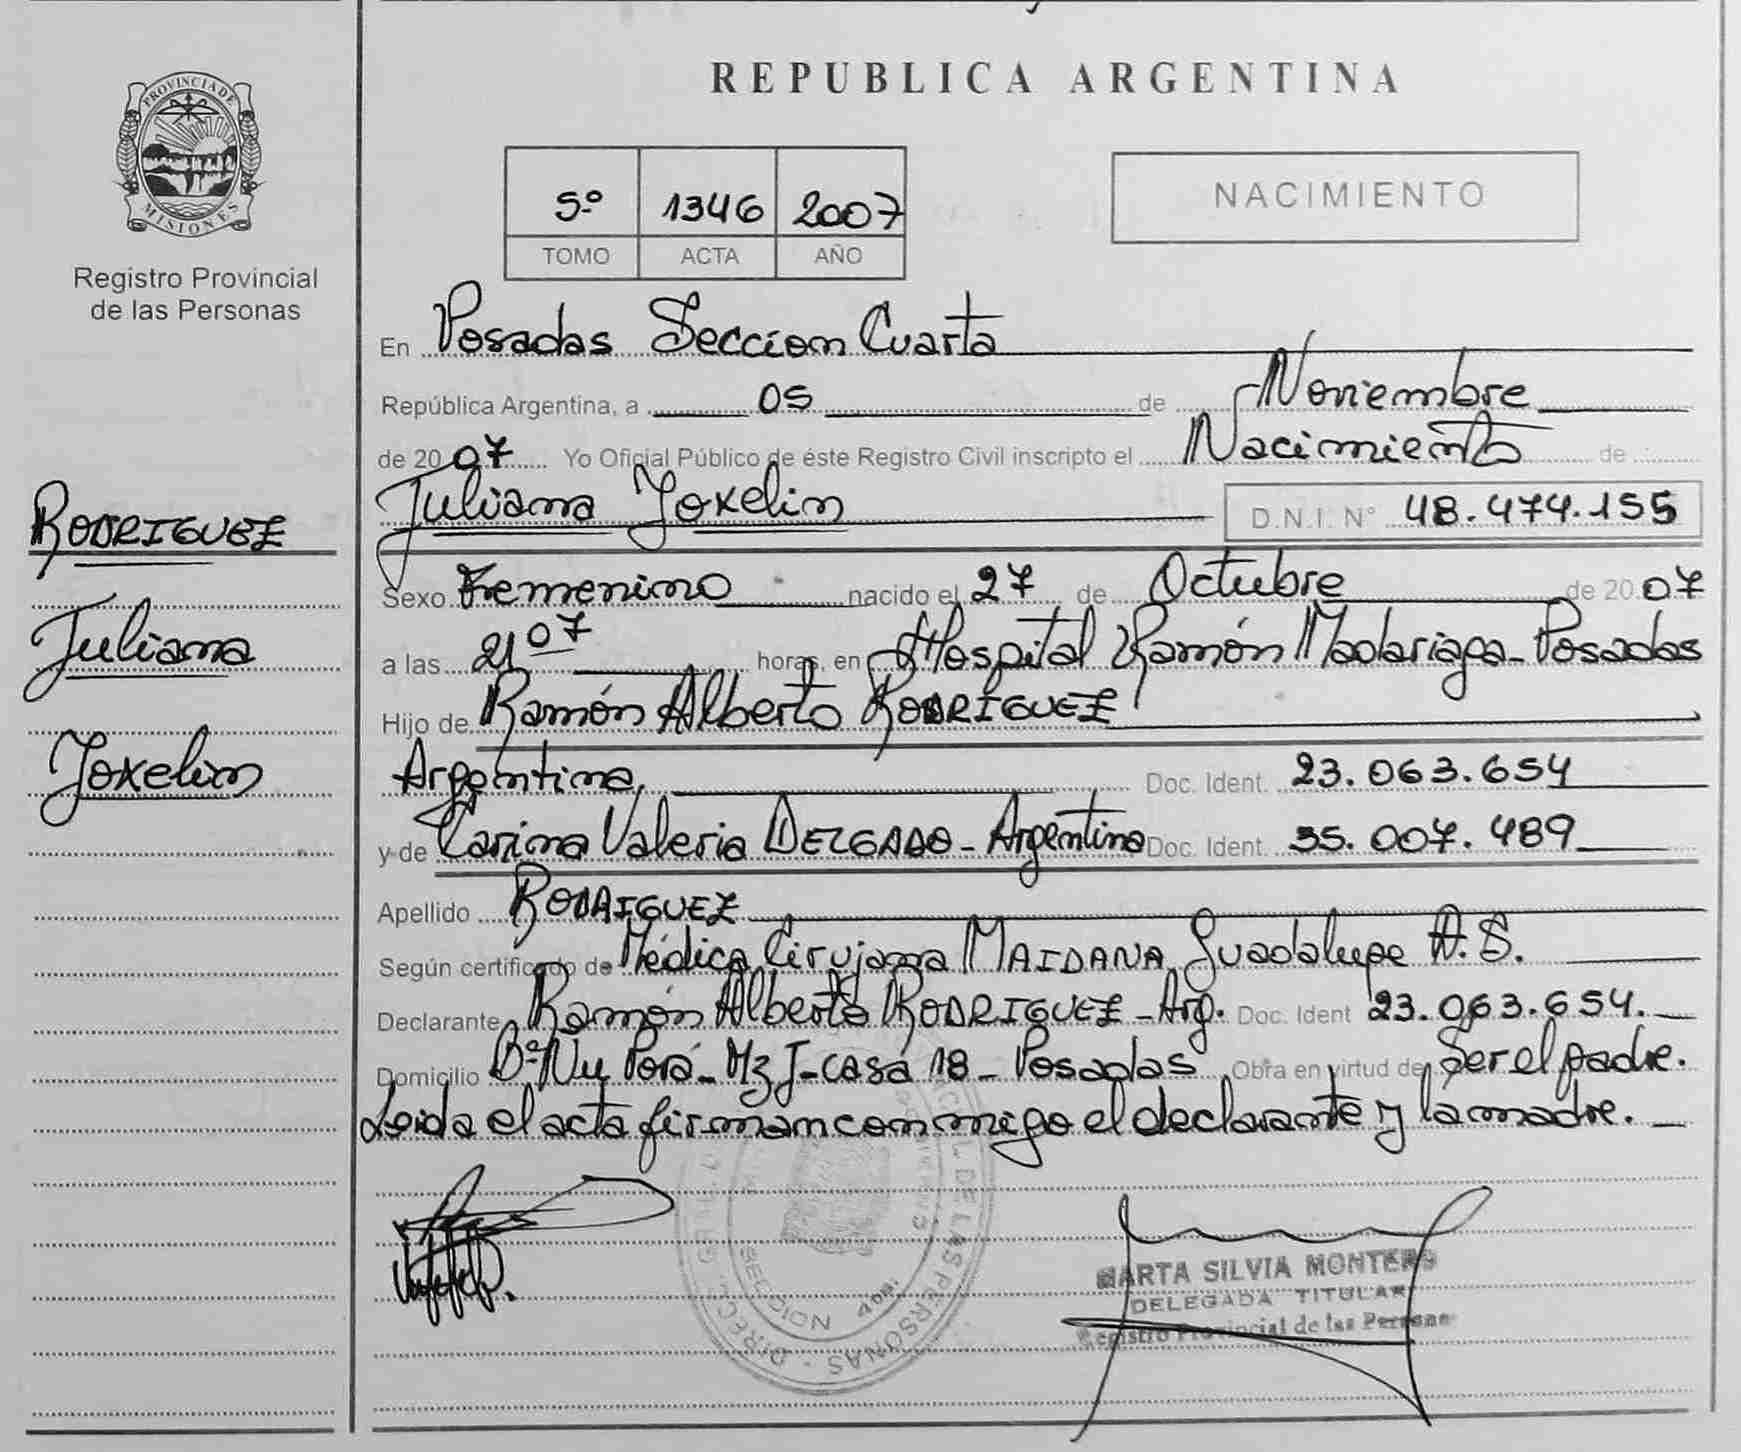 PROVINCIA DE
MISIONES
Registro Provincial
de las Personas
RODRIGUEZ
Juliana
Joxelin
REPUBLICA ARGENTINA
5º 1346 2007
TOMO ACTA AÑO
NACIMIENTO
En Posadas Seccion Cuarta
República Argentina, a 05 de Noviembre
de 2007 Yo Oficial Público de éste Registro Civil inscripto el Nacimiento de
Juliana Joxelin D.N.I. Nº 48.474.155
Sexo Femenino nacido el 27 de Octubre de 2007
a las 21 07 horas, en Hospital Ramón Madariaga - Posadas
Hijo de Ramón Alberto RODRÍGUEZ
Argentina, Doc. Ident. 23.063.654
y de Carina Valeria DELGADO - Argentina Doc. Ident. 35.007.489
Apellido RODRIGUEZ
Según certificado de Médica Cirujana MAIDANA, Guadalupe A. S.
Declarante Ramón Alberto RODRIGUEZ - Arg. Doc. Ident 23.063.654.
Domicilio Bº Ñu Porá - Mz J - casa 18 - Posadas Obra en virtud de Ser el padre.
Leida el acta firman conmigo el declarante y la madre.
SECCION 4ta.
MARTA SILVIA MONTERO
DELEGADA TITULAR
Registro Provincial de las Personas